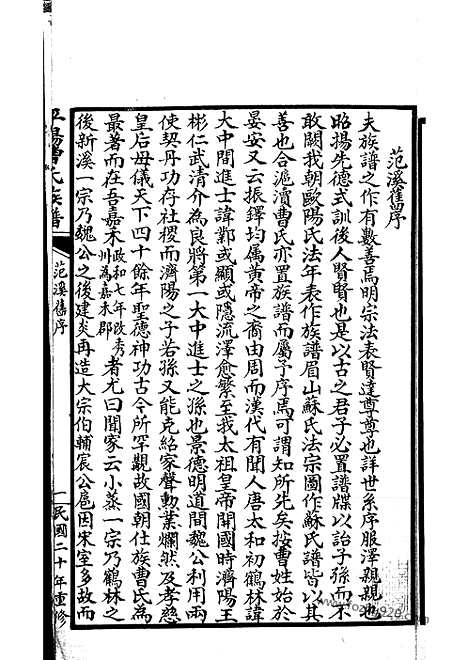 范溪舊序
夫族譜之作有數善焉明宗法表賢達尊尊也詳世系序服澤親親也
昭揚先德式訓後人賢賢也是以古之君子必置譜牒以詒子孫而不
敢闕我朝歐陽氏法年表作族譜眉山蘇氏法宗圖作蘇氏譜皆以其
善也合滬瀆曹氏亦置族譜而屬予序焉可謂知所先矣按曹姓始於
晏安又云振鐸均属黄帝之裔由周而漢代有聞人唐太和初鶴林諱
大中間進士諱鄴或顯或隱流澤愈繁至我太祖皇帝開國時濟陽王
彬仁武清介為良將第一大中進士之孫也景德明道間魏公利用兩
使契丹功存社稷而濟陽之子若孫又能克紹家聲勳業爛然及孝慈
皇后母儀天下四十餘年聖德神功古今所罕觀故國朝仕族曹氏為
最著而在吾嘉禾政和七年改秀州為嘉禾郡者尤曰聞家云小蒸一宗乃鶴林之
後新溪一宗乃魏公之後建炎再造大宗伯輔宸公扈因宋室多故而
平陽曹氏族譜
范溪舊序
一
民國二十年重修